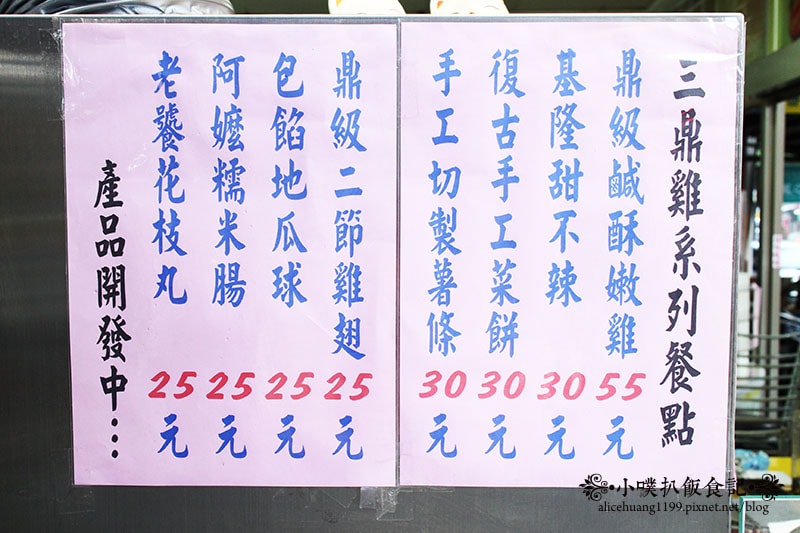 三鼎雞系列餐點
鼎級鹹酥嫩雞 55元
基隆甜不辣 30元
復古手工菜餅 30元
手工切製薯條 30元
鼎級二節雞翅 25元
包餡地瓜球 25元
阿嬤糯米腸 25元
老饕花枝丸 25元
產品開發中…
小噗扒飯食記
alicehuang1199.pixnet.net/blog